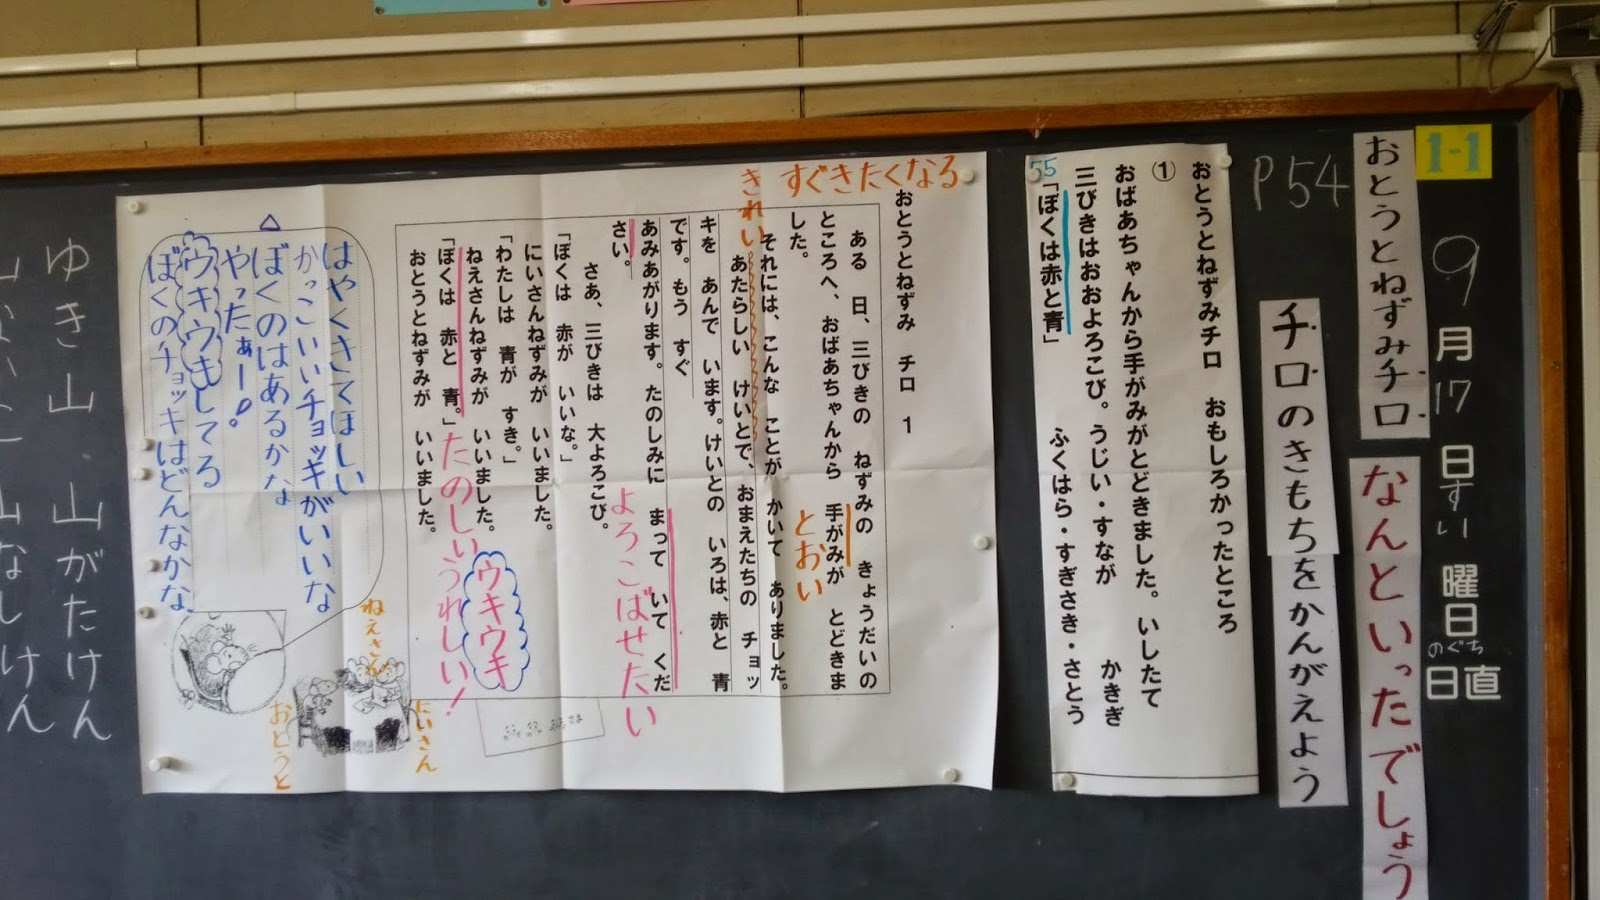 1-1
9月17日すい曜日
のぐち
日直
おとうとねずみチロ
なんといったでしょう
P54
チロのきもちをかんがえよう
おとうとねずみチロ　おもしろかったところ
①
おばあちゃんから手がみがとどきました。いしたて
三びきはおおよろこび。うじい・すなが　かきぎ
55
「ぼくは赤と青」　ふくはら・すぎさき・さとう
すぐきたくなる
おとうとねずみ　チロ　1
ある　日、三びきの　ねずみの　きょうだいの
ところへ、おばあちゃんから　手がみが　とどきま
した。
とおい
それには、こんな　ことが　かいて　ありました。
きれい
あたらしい　けいとで、おまえたちの　チョッ
キを　あんで　います。けいとの　いろは、赤と　青
です。もう　すぐ
あみあがります。たのしみに　まって　いて　くだ
さい。
よろこばせたい
さあ、三びきは　大よろこび。
「ぼくは　赤が　いいな。」
にいさんねずみが　いいました。
「わたしは　青が　すき。」
ねえさんねずみが　いいました。
ウキウキ
「ぼくは　赤と　青。」
たのしいうれしい!
おとうとねずみが　いいました。
はやくきてほしい
かっこいいチョッキがいいな
ぼくのはあるかな
やったぁー!。
ウキウキしてる
ぼくのチョッキはどんなかな
ねえさん
にいさん
おとうと
ゆき山　山がたけん